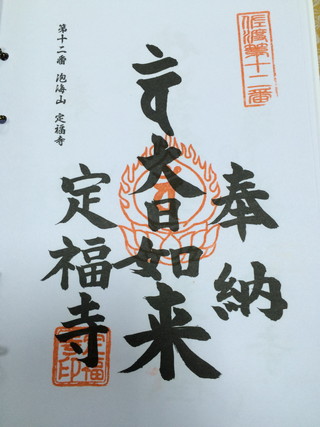 佐渡第十二番
奉納
大日如来
定福寺
第十二番 泡海山 定福寺